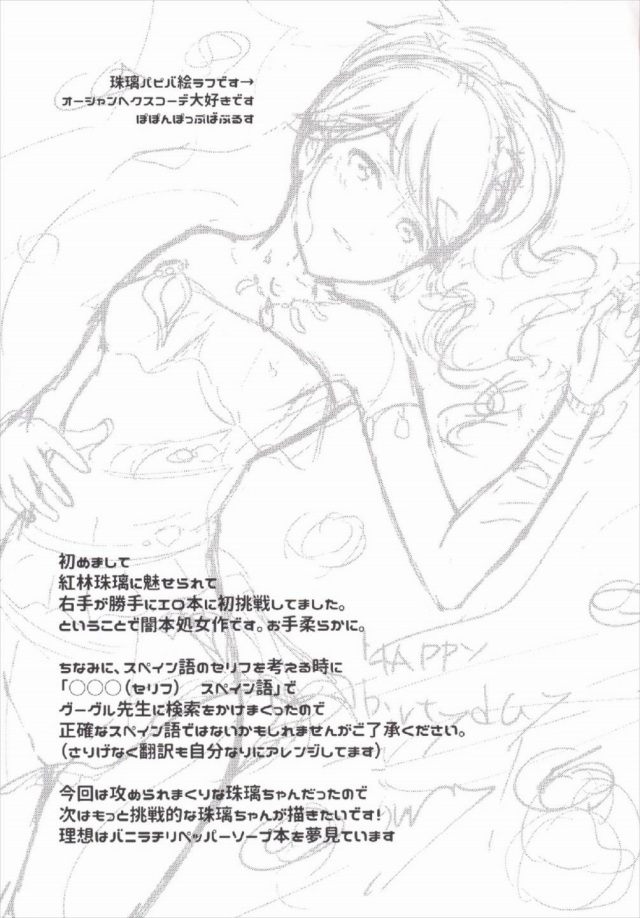 珠璃バピバ絵ラフです→
オーシャンヘクスコーデ大好きです
ぽぽんぽっぷばぶるす
初めまして
紅林珠璃に魅せられて
右手が勝手にエロ本に初挑戦してました。
ということで闇本処女作です。お手柔らかに。
ちなみに、スペイン語のセリフを考える時に
「○○○(セリフ)　スペイン語」で
グーグル先生に検索をかけまくったので
正確なスペイン語ではないかもしれませんがご了承ください。
(さりげなく翻訳も自分なりにアレンジしてます)
今回は攻められまくりな珠璃ちゃんだったので
次はもっと挑戦的な珠璃ちゃんが描きたいです!
理想はバニラチリペッパーソープ本を夢見ています
HAPPY
birthday